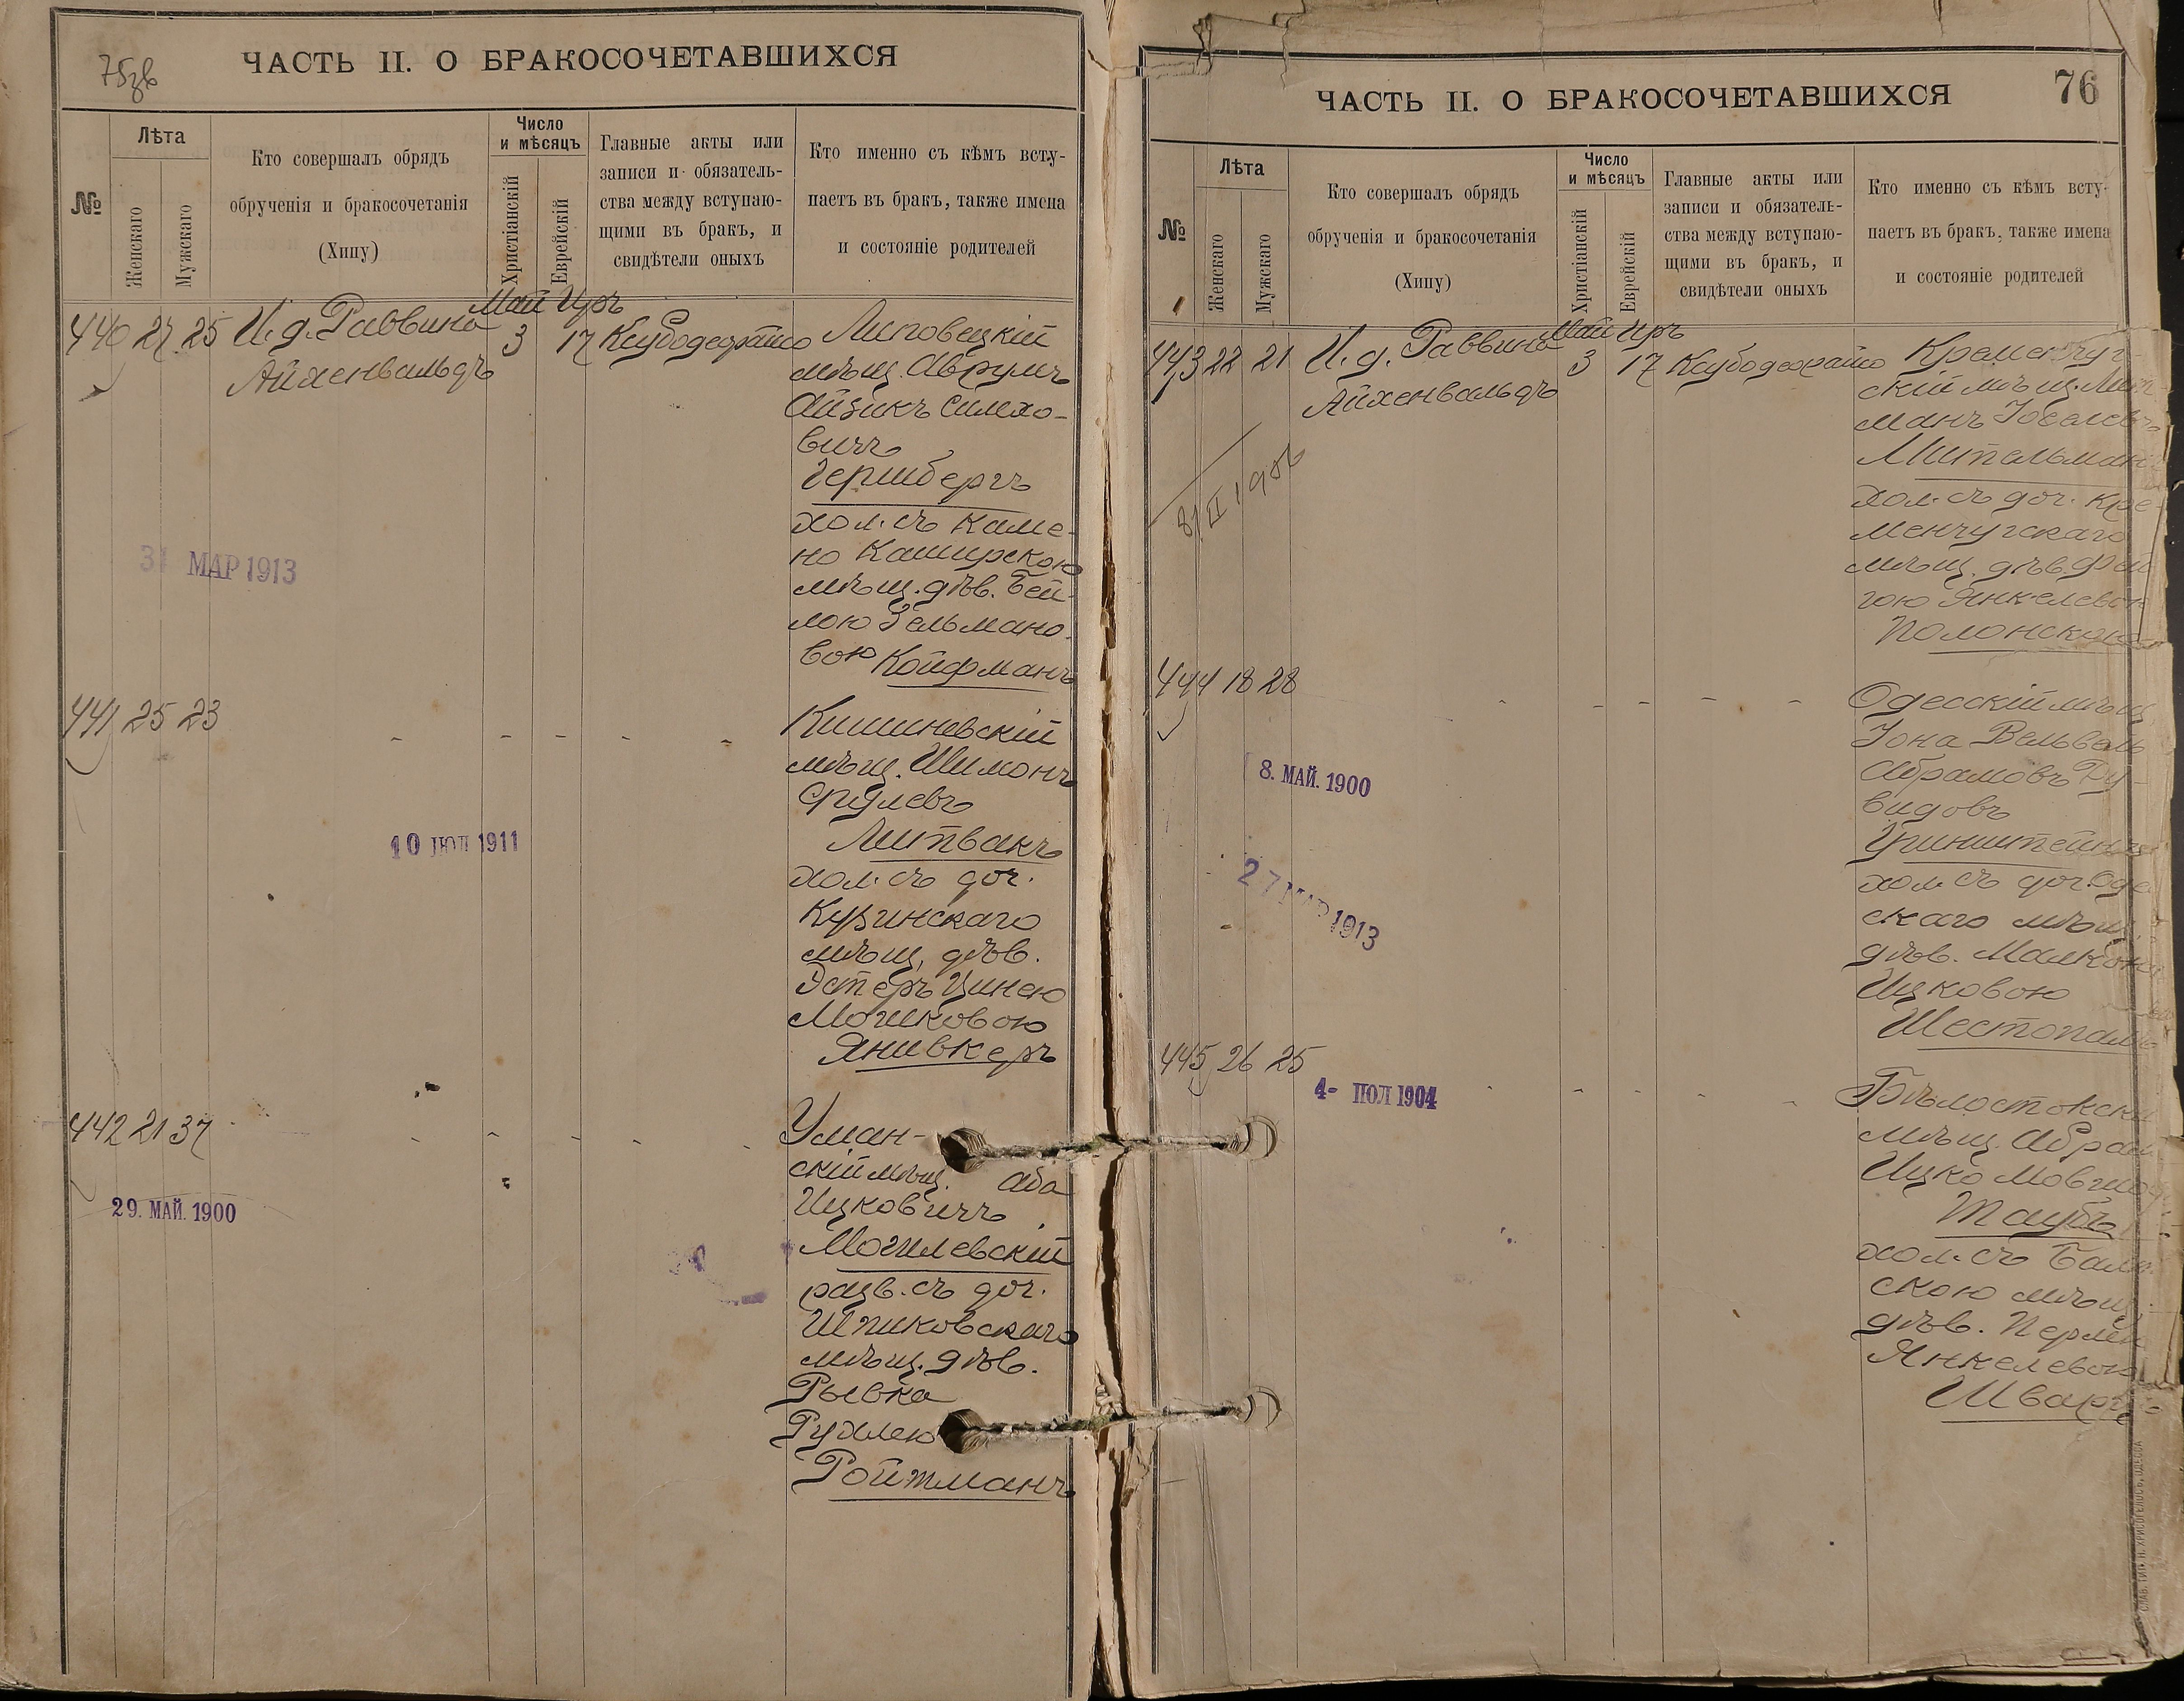 75зв
ЧАСТЬ II. О БРАКОСОЧЕТАВШИХСЯ
№
Лѣта
Женскаго
Мужскаго
Кто совершалъ обрядъ
обрученія и бракосочетанія
(Хипу)
Число
и мѣсяцъ
Христіанскій
Еврейскій
Главные акты или
записи и обязатель-
ства между вступаю-
щими въ бракъ, и
свидѣтели оныхъ
Кто именно съ кѣмъ всту-
паетъ въ бракъ, также имена
и состояніе родителей
Май Иръ
440 27 25 И. д. Раввина 3 17 Ксубодеорайсо Липовецкій
Айхенвальдъ мѣщ. Аврумъ
Айзикъ Симхо-
вичъ
Гершбергъ
хол. съ Каме-
но Каширскою
мѣщ. дѣв. Бей-
лою Зельмано-
вою Койфманъ
31 МАР 1913
441 25 23 - - - - - Кишиневскій
мѣщ. Шимонъ
Срулевъ
Литвакъ
хол. съ доч.
Кузинскаго
мѣщ. дѣв.
Эстеръ Цинею
Мошковою
Янивкеръ
10 ІЮЛ 1911
442 21 37 - - - - - Уман-
скій мѣщ. Аба
Ицковичъ
Могилевскій
разв. съ доч.
Шпиковскаго
мѣщ. дѣв.
Рывка
Рухлею
Ройтманъ
29. МАЙ. 1900
76
ЧАСТЬ II. О БРАКОСОЧЕТАВШИХСЯ
№
Лѣта
Женскаго
Мужскаго
Кто совершалъ обрядъ
обрученія и бракосочетанія
(Хипу)
Число
и мѣсяцъ
Христіанскій
Еврейскій
Главные акты или
записи и обязатель-
ства между вступаю-
щими въ бракъ, и
свидѣтели оныхъ
Кто именно съ кѣмъ всту-
паетъ въ бракъ, также имена
и состояніе родителей
Май Иръ
443 22 21 И. д. Раввина 3 17 Ксубодеорайсо Кременчуг-
Айхенвальдъ скій мѣщ. Лип-
манъ Іоселевъ
Мительман
хол. съ доч. Кре-
менчугскаго
мѣщ. дѣв. Фей
гою Янкелевою
Полонскою
8/II 1906
444 18 28 - - - - - Одесскій мѣщ.
Іона Вельвель
Абрамовъ Ду-
видовъ
Гринштейнъ
хол. съ доч. Оде
скаго мѣщ.
дѣв. Малкою
Ицковою
Шестопалъ
8. МАЙ. 1900
27 МАР 1913
445 26 25 - - - - - Бѣлостокскі
мѣщ. Абрам
Ицко Мовшов
Таубъ
хол. съ Балт
скою мѣщ.
дѣв. Перлею
Янкелевою
Шварцъ
4- ІЮЛ 1904
СЛАВ. ТИП. Н. ХРИСОГЕЛОСЪ, ОДЕССА